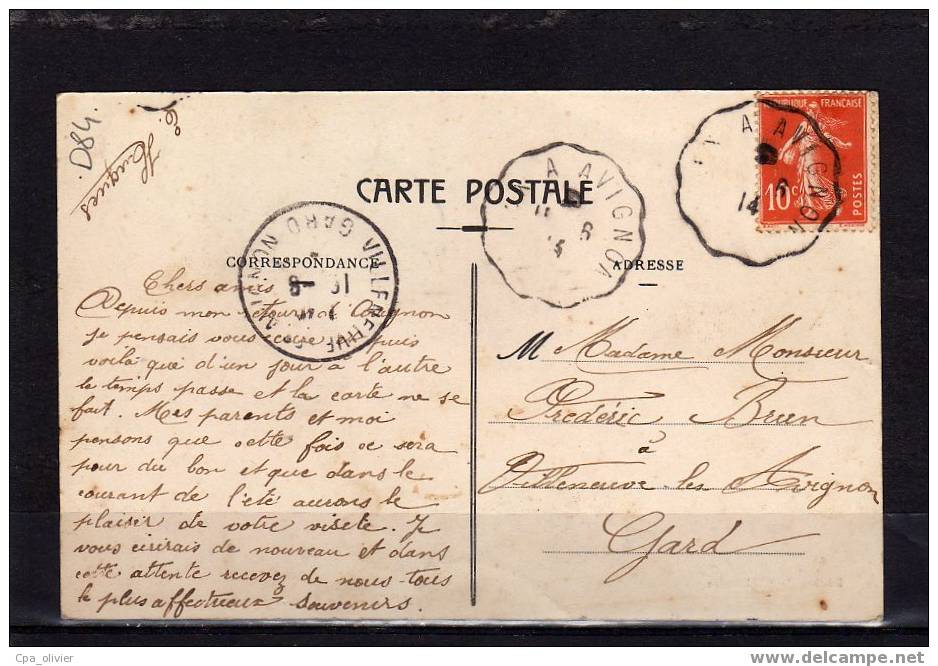 D84.
Hugues
CARTE POSTALE
CORRESPONDANCE
ADRESSE
A AVIGNON
6
14
A AVIGNON
11
6
14
RÉPUBLIQUE FRANÇAISE
10c
POSTES
VILLENEUVE
GARD
Chers amis
Depuis mon retour d'Avignon
je pensais vous puis
voilà que d'un jour à l'autre
le temps passe et la carte ne se
fait. Mes parents et moi
pensons que cette fois ce sera
pour du bon et que dans le
courant de l'été aurons le
plaisir de votre visete. Je
vous ecirais de nouveau et dans
cette attente recevez de nous tous
le plus affectueux souvenirs.
M Madame Monsieur
Frédéric Brun
à
Villeneuve les Avignon
Gard
Cpa_olivier
delcampe.net